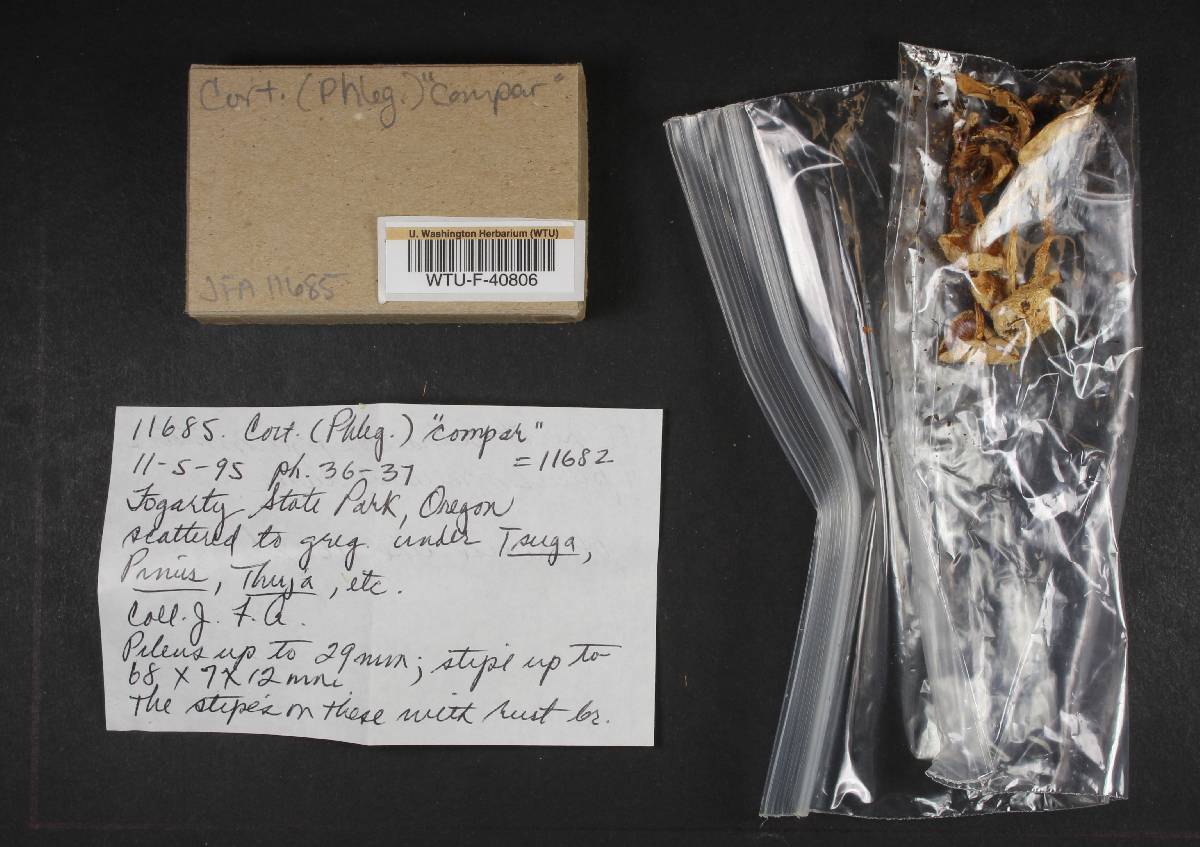 Cort. (Phleg.) "compar"
JFA 11685
U. Washington Herbarium (WTU)
WTU-F-40806
11685. Cort. (Phleg.) "compar"
11-5-95 ph. 36-37 = 11682
Fogarty State Park, Oregon
scattered to greg. under Tsuga,
Pinus, Thuja, etc.
Coll. J. F. A.
Pileus up to 29 mm; stipe up to
68 X 7 X 12 mm
The stipes on these with rust br.